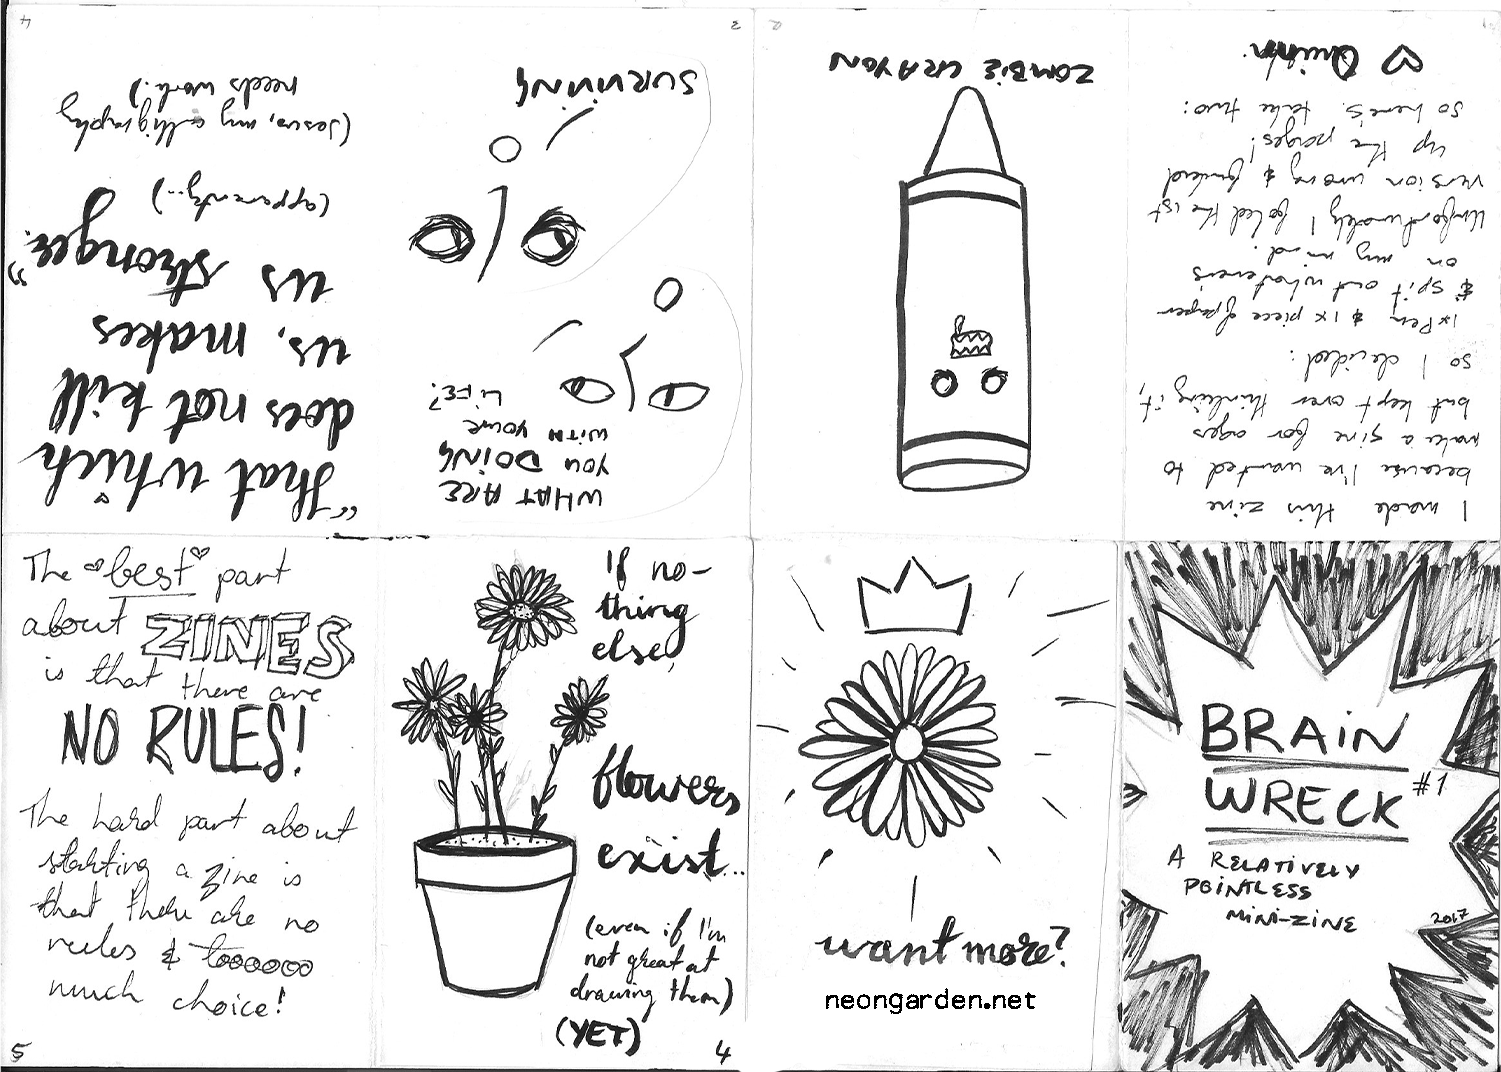 BRAIN
WRECK #1
A RELATIVELY
POINTLESS
MINI-ZINE
2017
I made this zine
because I've wanted to
make a zine for ages
but kept over thinking it,
so I decided:
1x Pen & 1x piece of paper
& spit out whatever's
on my mind.
Unfortunately I folded the 1st
version wrong & fucked
up the pages!
So here's, take two:
♡ Quinn.
1
ZOMBIE CRAYON
2
WHAT ARE
YOU DOING
WITH YOUR
LIFE?
SURVIVING
3
"that which
does not kill
us, makes
us stronger."
(apparently...)
(Jesus, my calligraphy
needs work.)
4
The best part
about ZINES
is that there are
NO RULES!
The hard part about
starting a zine is
that there are no
rules & toooooo
much choice!
5
If no-
thing
else,
flowers
exist...
(even if I'm
not great at
drawing them)
(YET)
4
want more?
neongarden.net